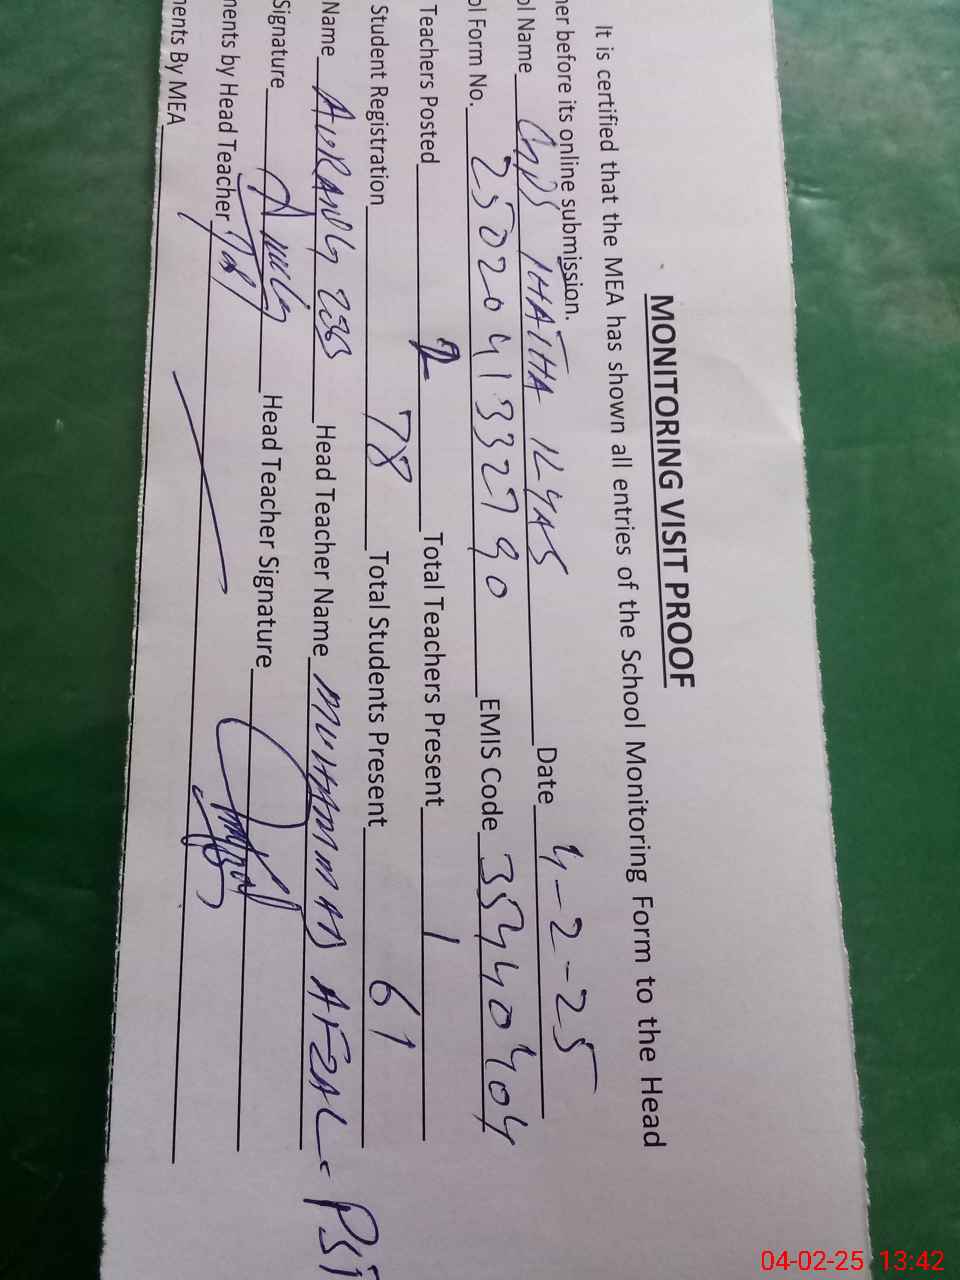 MONITORING VISIT PROOF
It is certified that the MEA has shown all entries of the School Monitoring Form to the Head
her before its online submission.
ol Name GPS JHATHA ILYAS Date 4-2-25
ol Form No. 2502041332790 EMIS Code 35440404
Teachers Posted 2 Total Teachers Present 1
Student Registration 78 Total Students Present 61
Name AURANG ZEB Head Teacher Name MUHAMMAD AFZAL PST
Signature Head Teacher Signature
ments by Head Teacher
ments By MEA
04-02-25 13:42